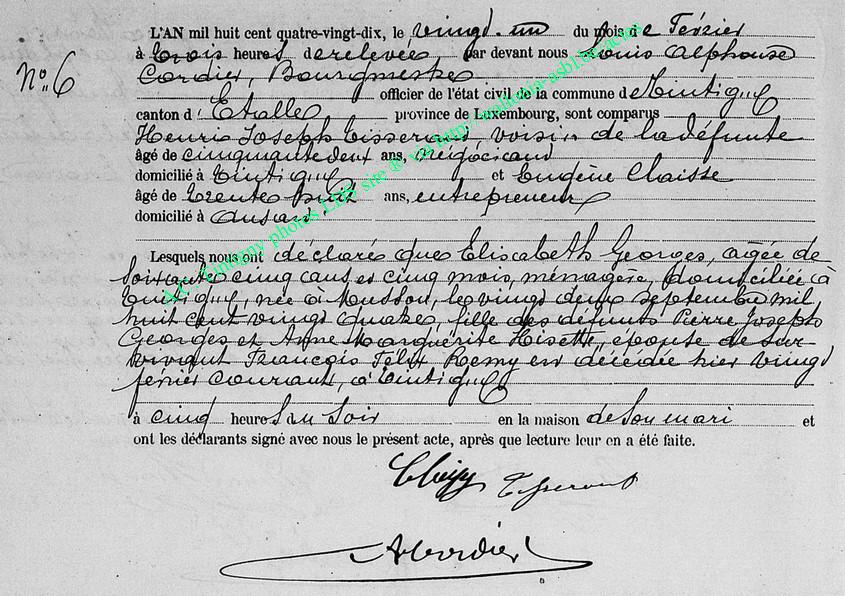 L'AN mil huit cent quatre-vingt-dix, le vingt-un du mois de Février
à trois heures de relevée par devant nous Louis Alphonse
N° 6
Cordier, Bourgmestre
officier de l'état civil de la commune de Tintigny
canton d'Etalle province de Luxembourg, sont comparus
Henri Joseph Tisserand, voisin de la défunte
âgé de cinquante deux ans, négociant
domicilié à Tintigny et Eugène Claisse
âgé de trente huit ans, entrepreneur
domicilié à Ansart
Lesquels nous ont déclaré que Elisabeth Georges, agée de
soixante cinq ans et cinq mois, ménagère, domiciliée à
Tintigny, née à Musson, le vingt deux septembre mil
huit cent vingt quatre, fille des défunts Pierre Joseph
Georges et Anne Marguérite Lisette, épouse de sur-
vivant François Felix Remy est décédée hier vingt
février courant, à Tintigny
à cinq heures du soir en la maison de son mari et
ont les déclarants signé avec nous le présent acte, après que lecture leur en a été faite.
Tisserand
ACordier